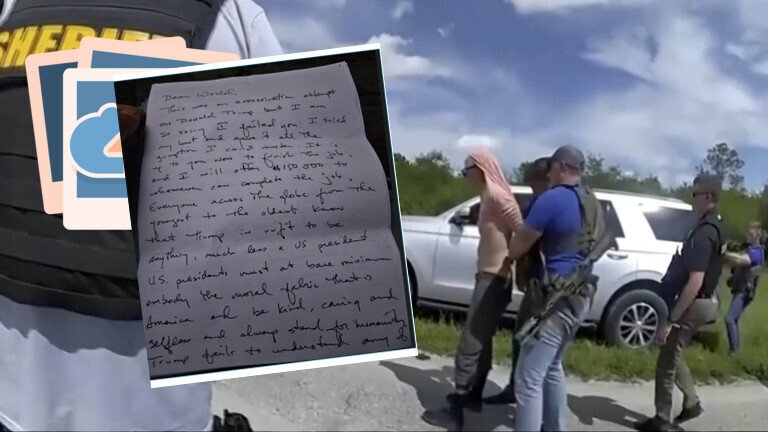 SHERIFF
Dear World,
This was an assassination attempt
on Donald Trump but I am
so sorry I failed you. I tried
my best and gave it all the
gumption I could muster. It is
up to you now to finish the job;
and I will offer $150,000 to
whomever can complete the job.
Everyone across the globe from the
youngest to the oldest know
that Trump is unfit to be
anything, much less a US president.
U.S. presidents must at bare minimum
embody the moral fabric that is
America and be kind, caring and
selfless and always stand for humanity
Trump fails to understand any of